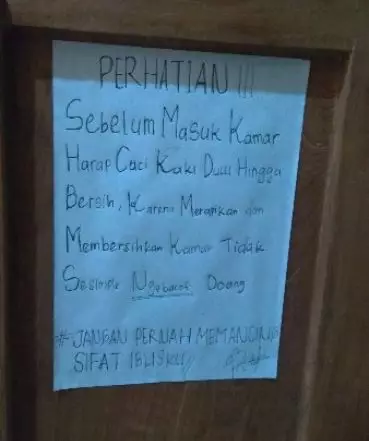 PERHATIAN !!!
Sebelum Masuk Kamar
Harap Cuci Kaki Dulu Hingga
Bersih, Karena Merapikan dan
Membersihkan Kamar Tidak
Sesimple Ngebacot Doang
# JANGAN PERNAH MEMANCING
SIFAT IBLISKU